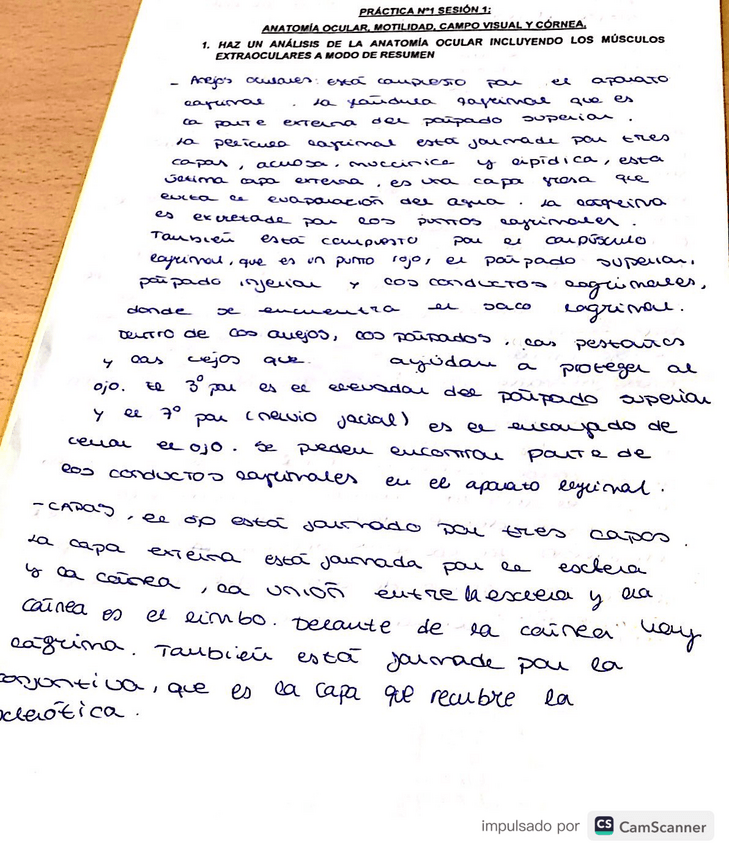 PRÁCTICA Nº1 SESIÓN 1:
ANATOMÍA OCULAR, MOTILIDAD, CAMPO VISUAL Y CÓRNEA.
1. HAZ UN ANÁLISIS DE LA ANATOMÍA OCULAR INCLUYENDO LOS MÚSCULOS
EXTRAOCULARES A MODO DE RESUMEN
- Anejos oculares: está compuesto por el aparato
lagrimal. La glándula lagrimal que es
la parte externa del párpado superior.
La película lagrimal está formada por tres
capas, acuosa, muccínica y lipídica, esta
última capa externa, es una capa grasa que
evita la evaporación del agua. La lágrima
es excretada por los puntos lagrimales.
También está compuesto por el carpúsculo
lagrimal, que es un punto rojo, el párpado superior,
párpado inferior y los conductos lagrimales,
donde se encuentra el saco lagrimal.
Dentro de los anejos, los párpados, las pestañas
y las cejas que ayudan a proteger al
ojo. El 3º par es el elevador del párpado superior
y el 7º par (nervio facial) es el encargado de
cerrar el ojo. Se pueden encontrar parte de
los conductos lagrimales en el aparato lagrimal.
- CAPAS, el ojo está formado por tres capas.
La capa externa está formada por la esclera
y la córnea, la unión entre la esclera y la
córnea es el limbo. Delante de la córnea hay
lágrima. También está formada por la
conjontiva, que es la capa que recubre la
sclerótica.
impulsado por CS CamScanner